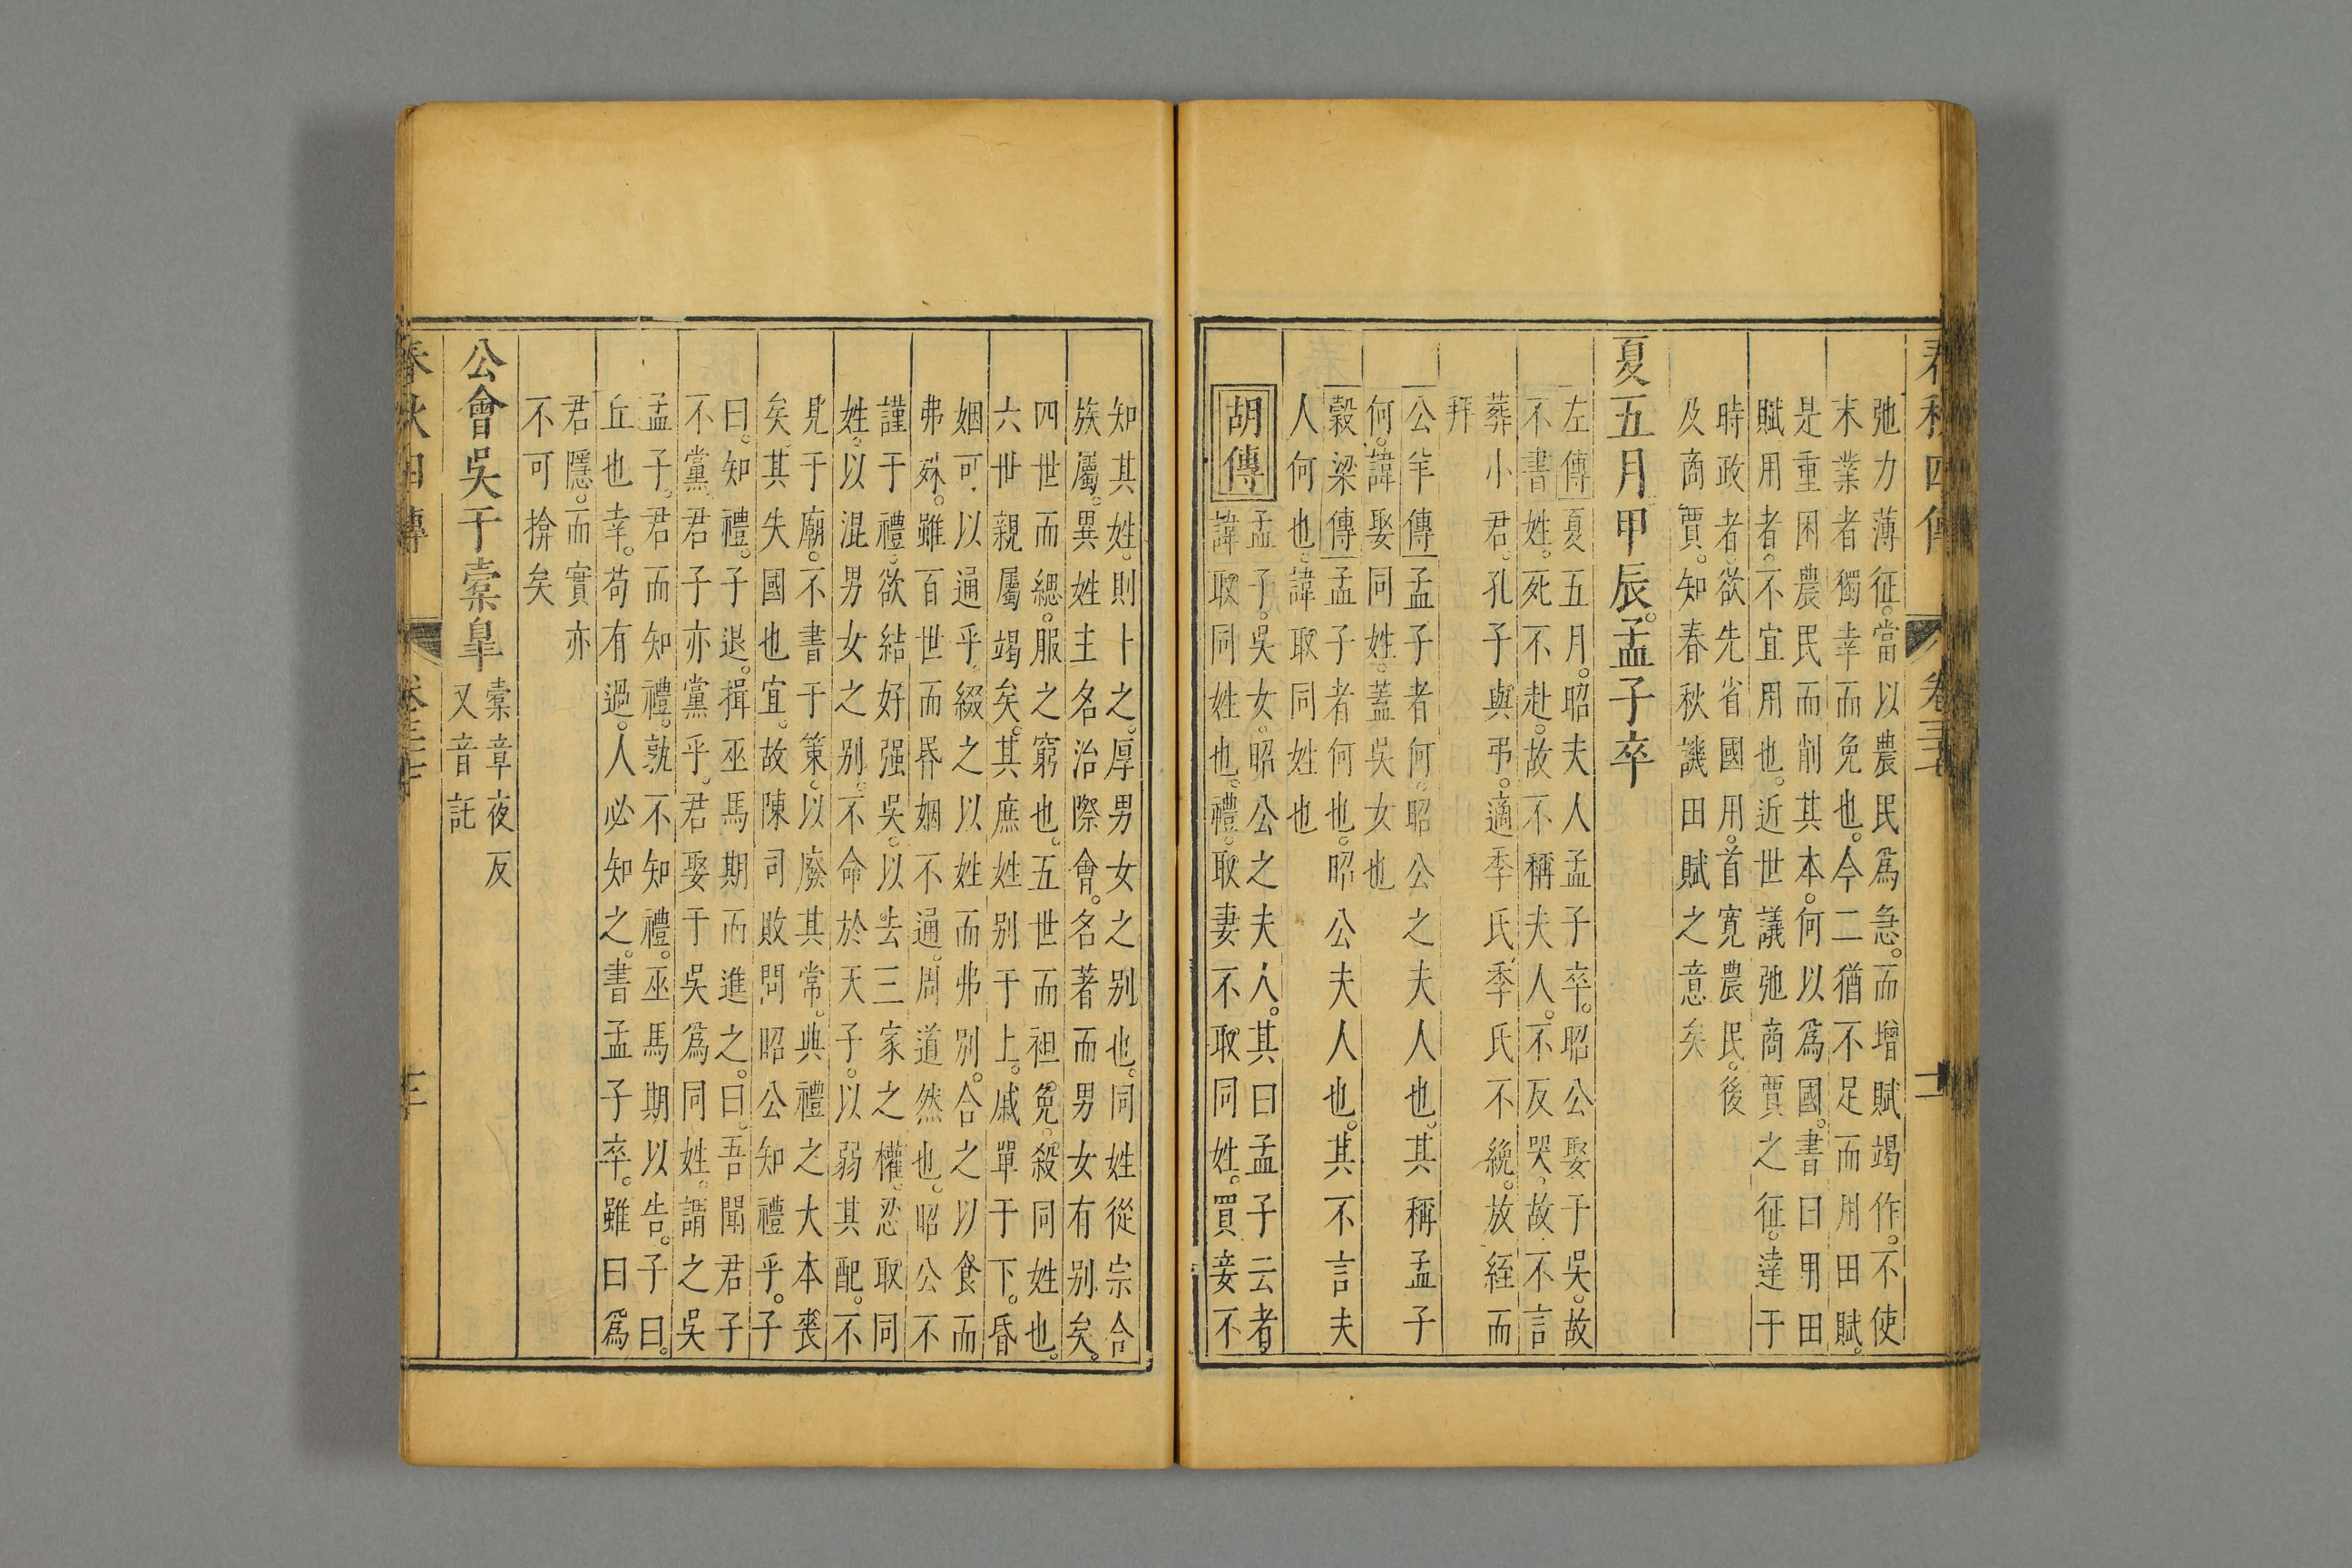 春秋四傳 卷三十七 二
弛力薄征。當以農民爲急。而增賦竭作。不使
末業者獨幸而免也。今二猶不足而用田賦。
是重困農民而削其本。何以爲國。書曰用田
賦用者。不宜用也。近世議弛商賈之征。達于
時政者。欲先省國用。首寬農民。後
及商賈。知春秋譏田賦之意矣
夏五月甲辰。孟子卒
左傳夏五月。昭夫人孟子卒。昭公娶于吳。故
不書姓。死不赴。故不稱夫人。不反哭。故不言
葬小君。孔子與弔。適季氏。季氏不絻。放絰而
拜
公羊傳孟子者何。昭公之夫人也。其稱孟子
何。諱娶同姓。蓋吳女也
穀梁傳孟子者何也。昭公夫人也。其不言夫
人何也。諱取同姓也
胡傳孟子。吳女。昭公之夫人。其曰孟子云者。
諱取同姓也。禮。取妻不取同姓。買妾不
知其姓。則卜之。厚男女之别也。同姓從宗合
族屬。異姓主名治際會。名著而男女有别矣。
四世而緦。服之窮也。五世而袒免。殺同姓也。
六世親屬竭矣。其庶姓别于上。戚單于下。昏
姻可以通乎。綴之以姓而弗别。合之以食而
弗殊。雖百世而昬姻不通。周道然也。昭公不
謹于禮。欲結好强吳。以去三家之權。忍取同
姓。以混男女之别。不命於天子。以弱其配。不
見于廟。不書于策。以廢其常。典禮之大本喪
矣。其失國也宜。故陳司敗問昭公知禮乎。子
曰。知禮。子退。揖巫馬期而進之。曰。吾聞君子
不黨。君子亦黨乎。君娶于吳爲同姓。謂之吳
孟子。君而知禮。孰不知禮。巫馬期以告。子曰。
丘也幸。苟有過。人必知之。書孟子卒。雖曰爲
君隱。而實亦
不可揜矣
公會吳于橐皐橐章夜反
又音託
春秋四傳 卷三十七